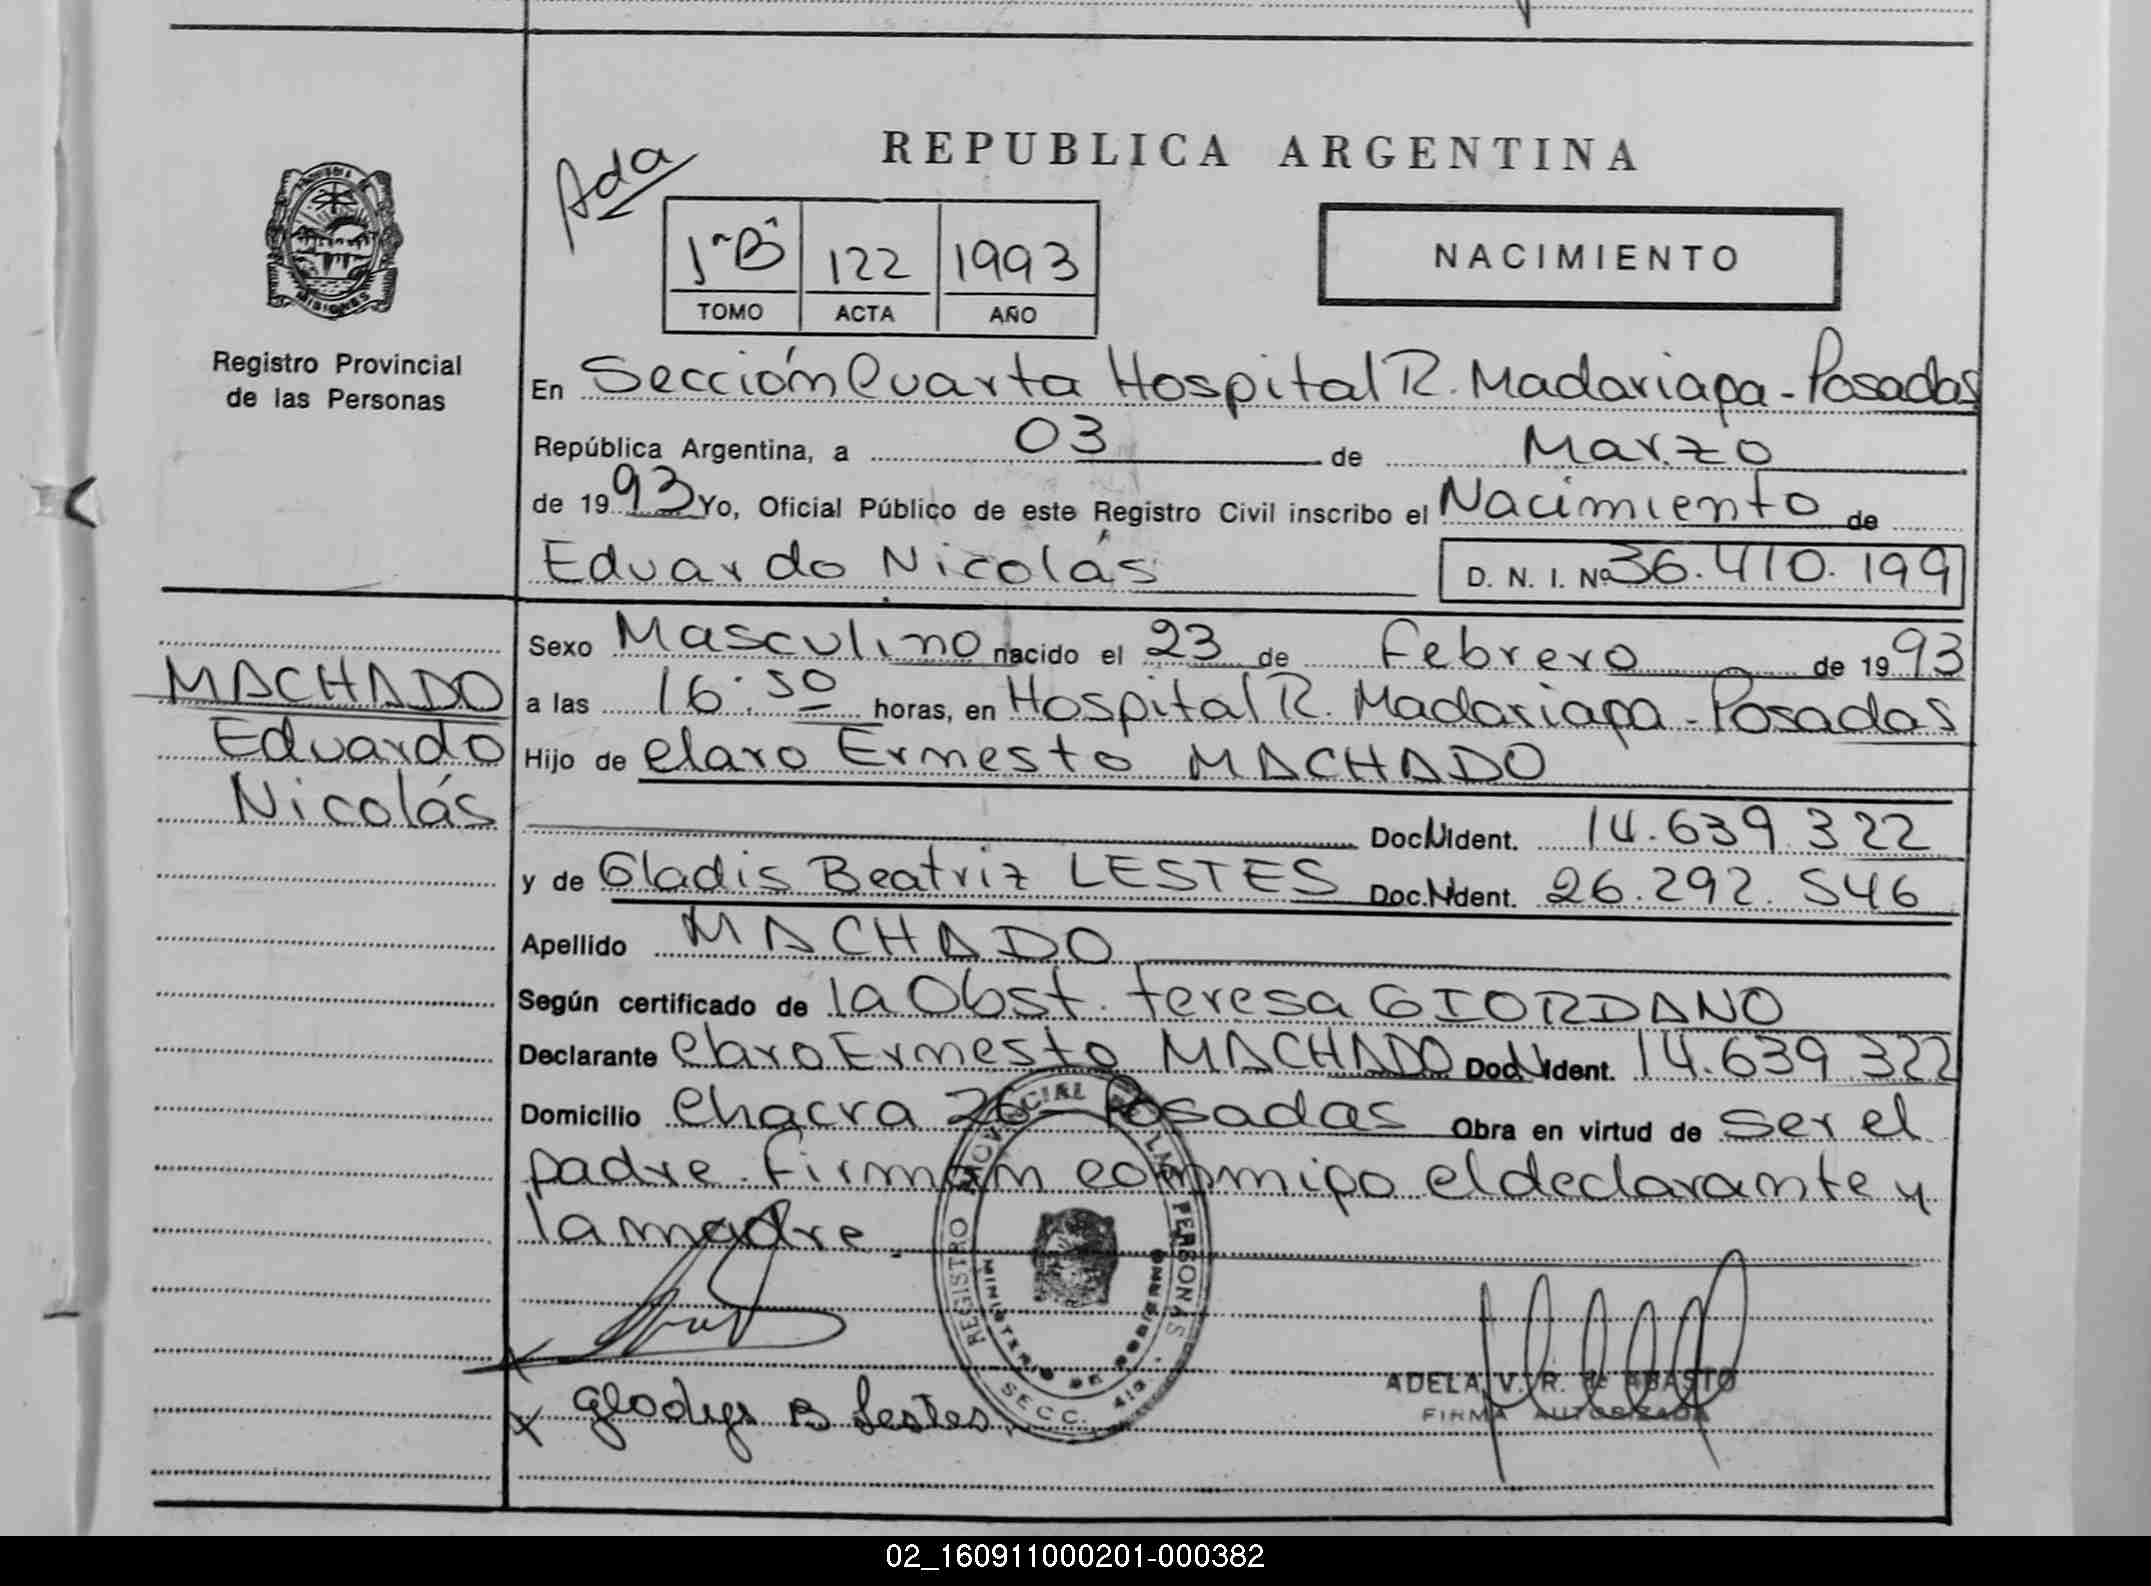 REPUBLICA ARGENTINA
Ada
1º "B"
122
1993
TOMO
ACTA
AÑO
NACIMIENTO
Registro Provincial
de las Personas
MISIONES
En Sección Cuarta Hospital R. Madariaga - Posadas
República Argentina, a 03 de Marzo
de 1993 Yo, Oficial Público de este Registro Civil inscribo el Nacimiento de
Eduardo Nicolás D. N. I. Nº 36.410.199
MACHADO
Eduardo
Nicolás
Sexo Masculino nacido el 23 de Febrero de 1993
a las 16:50 horas, en Hospital R. Madariaga - Posadas
Hijo de Claro Ernesto MACHADO
Doc.N.Ident. 14.639.322
y de Gladis Beatriz LESTES Doc.N.Ident. 26.292.546
Apellido MACHADO
Según certificado de la Obst. Teresa GIORDANO
Declarante Claro Ernesto MACHADO Doc.N.Ident. 14.639.322
Domicilio Chacra 26 - Posadas Obra en virtud de ser el
padre. Firman conmigo el declarante y
la madre.
REGISTRO PROVINCIAL DE LAS PERSONAS
MINISTERIO DE GOBIERNO
SECC. 4ta.
gladys B Lestes
ADELA V. R. de ABASTO
FIRMA AUTORIZADA
02_160911000201-000382